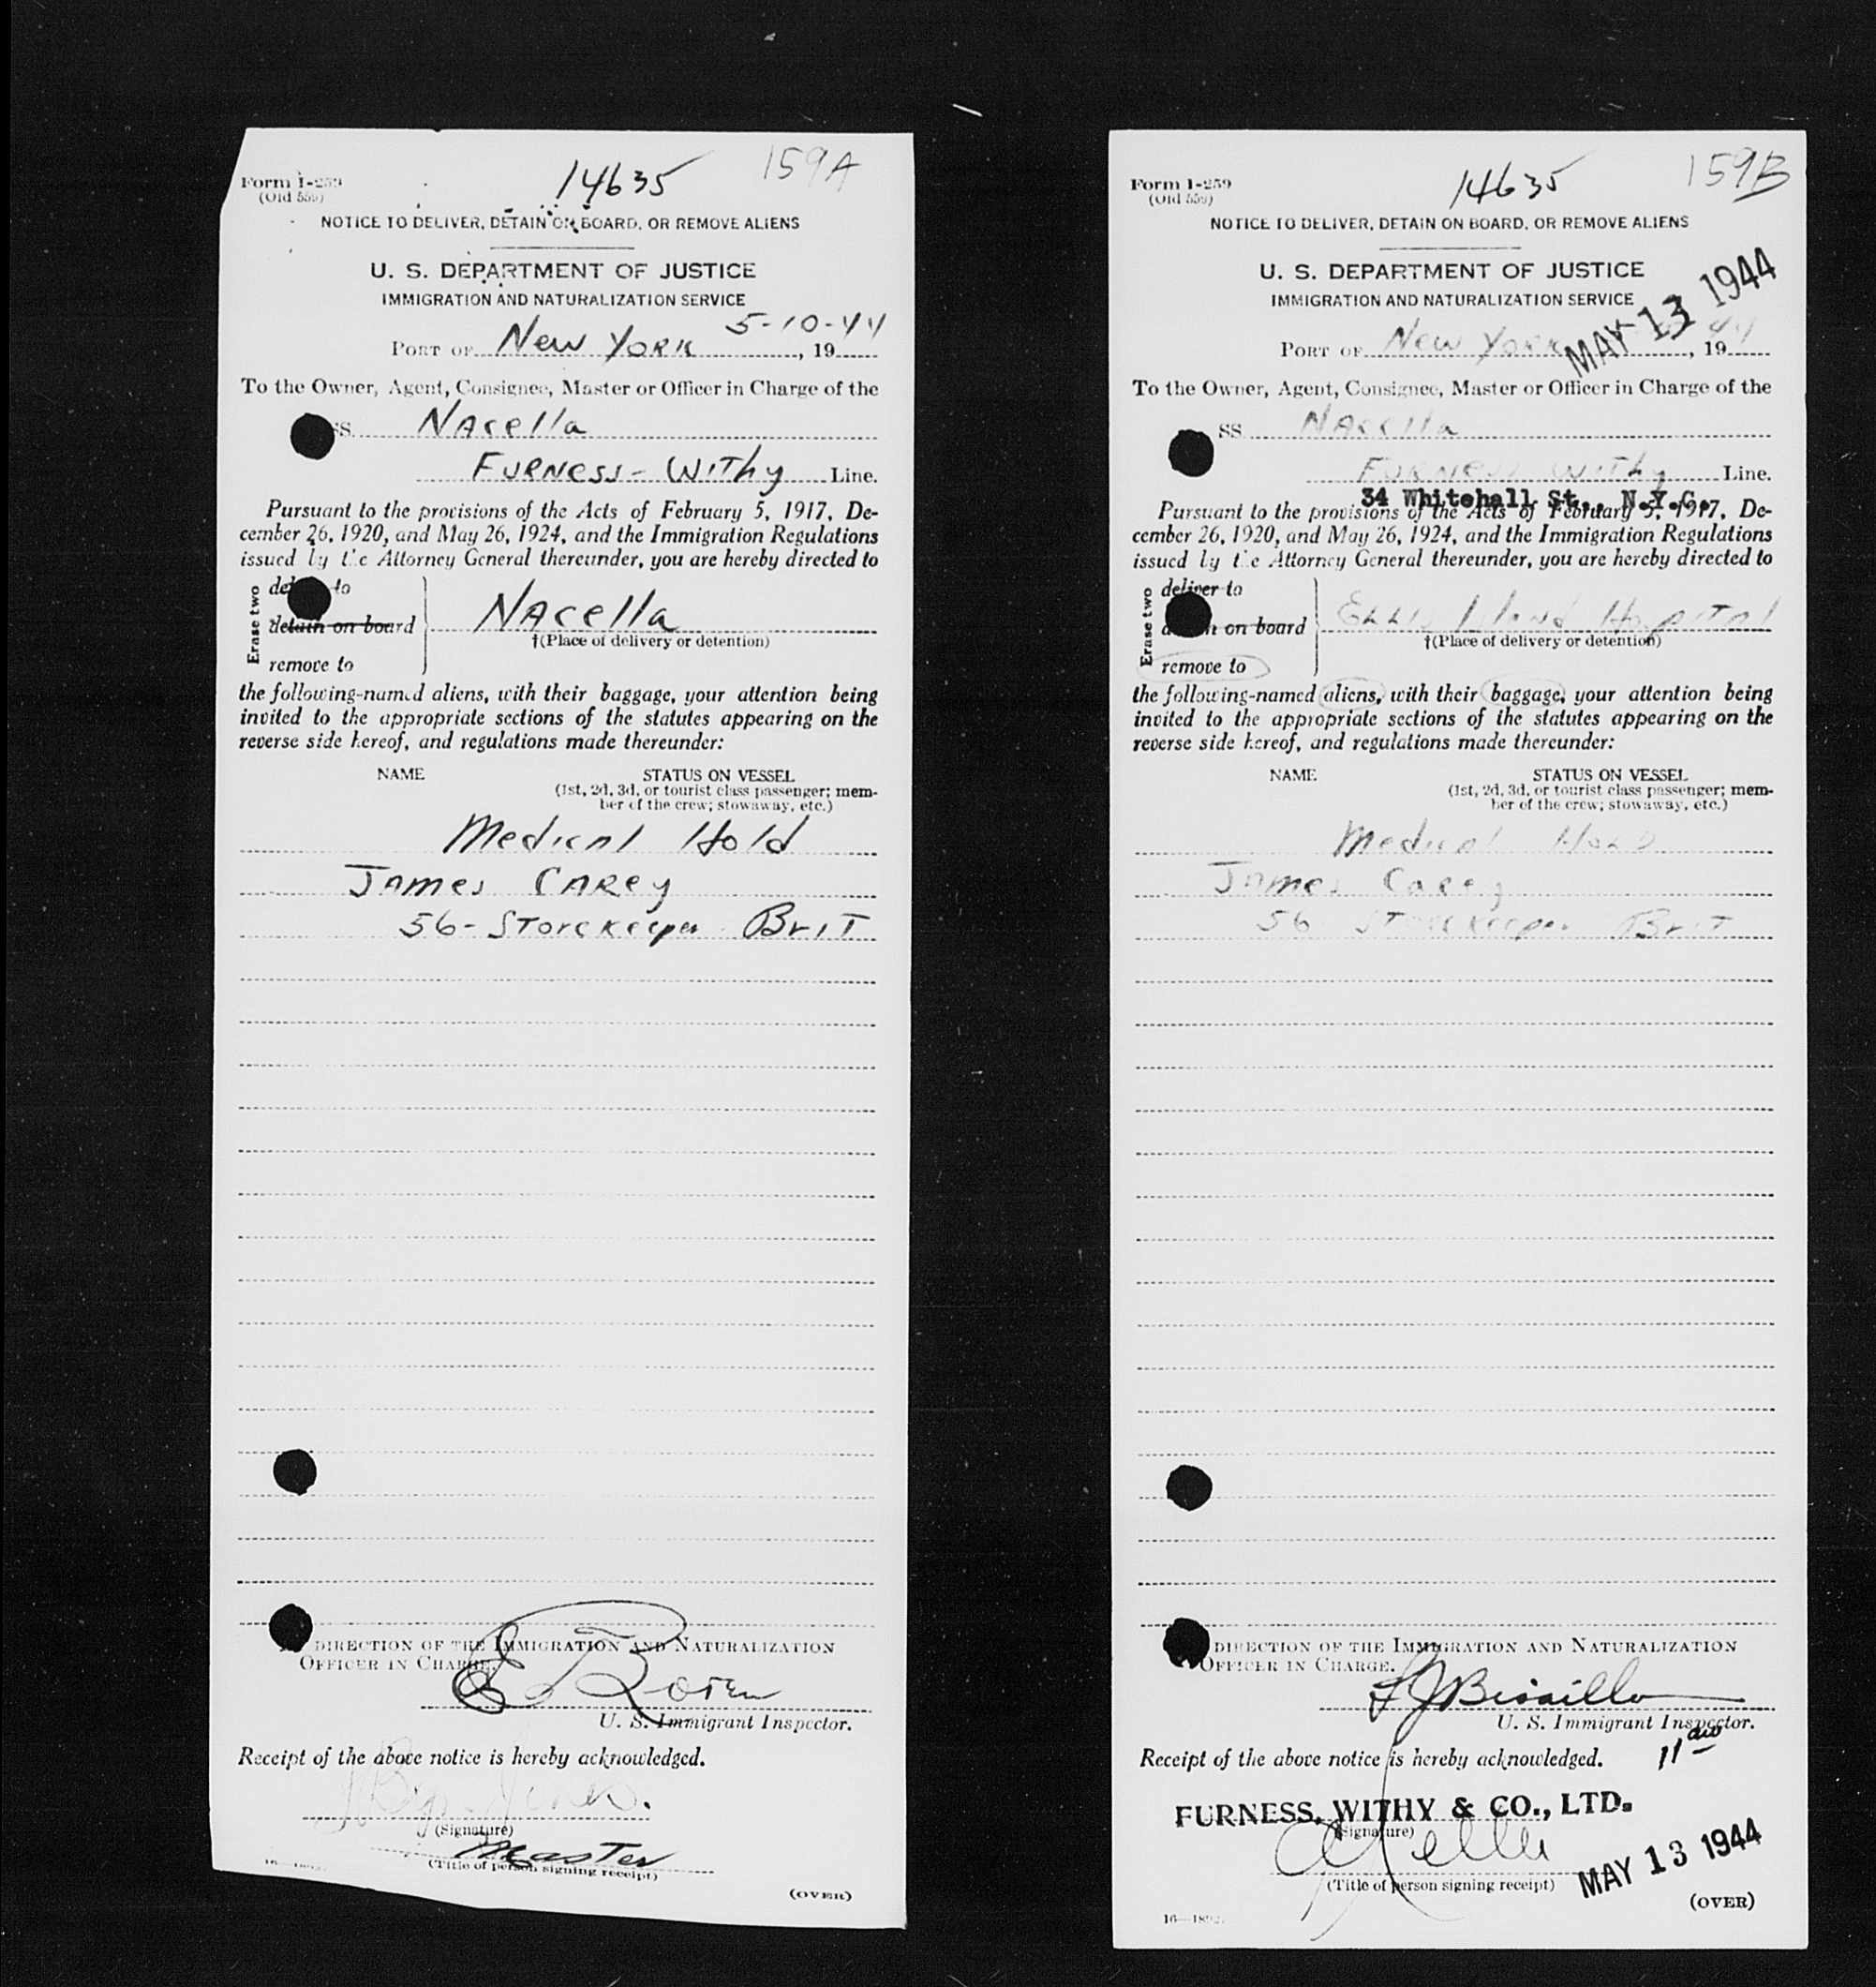 159A
14635
Form I-259
(Old 559)
NOTICE TO DELIVER, DETAIN ON BOARD, OR REMOVE ALIENS
U. S. DEPARTMENT OF JUSTICE
IMMIGRATION AND NATURALIZATION SERVICE
5-10-44
PORT OF New York, 19
To the Owner, Agent, Consignee, Master or Officer in Charge of the
SS. Nacella
Furness-Withy Line.
Pursuant to the provisions of the Acts of February 5, 1917, De-
cember 26, 1920, and May 26, 1924, and the Immigration Regulations
issued by the Attorney General thereunder, you are hereby directed to
Erase two
to
detain on board
Nacella
†(Place of delivery or detention)
remove to
the following-named aliens, with their baggage, your attention being
invited to the appropriate sections of the statutes appearing on the
reverse side hereof, and regulations made thereunder:
NAME STATUS ON VESSEL
(1st, 2d, 3d, or tourist class passenger; mem-
ber of the crew; stowaway, etc.)
Medical Hold
James Carey
56 - Storekeeper Brit
DIRECTION OF THE IMMIGRATION AND NATURALIZATION
OFFICER IN CHARGE.
U. S. Immigrant Inspector.
Receipt of the above notice is hereby acknowledged.
(Signature)
Master
(Title of person signing receipt)
(OVER)
159B
14635
Form I-259
(Old 559)
NOTICE TO DELIVER, DETAIN ON BOARD, OR REMOVE ALIENS
U. S. DEPARTMENT OF JUSTICE
IMMIGRATION AND NATURALIZATION SERVICE
MAY 13 1944
PORT OF New York, 1944
To the Owner, Agent, Consignee, Master or Officer in Charge of the
SS Nacella
Furness Withy Line.
34 Whitehall St., N.Y.C.
Pursuant to the provisions of the Acts of February 5, 1917, De-
cember 26, 1920, and May 26, 1924, and the Immigration Regulations
issued by the Attorney General thereunder, you are hereby directed to
Erase two
deliver to
on board
Ellis Island Hospital
†(Place of delivery or detention)
remove to
the following-named aliens, with their baggage, your attention being
invited to the appropriate sections of the statutes appearing on the
reverse side hereof, and regulations made thereunder:
NAME STATUS ON VESSEL
(1st, 2d, 3d, or tourist class passenger; mem-
ber of the crew; stowaway, etc.)
Medical Hold
James Carey
56 Storekeeper Brit
DIRECTION OF THE IMMIGRATION AND NATURALIZATION
OFFICER IN CHARGE.
U. S. Immigrant Inspector.
Receipt of the above notice is hereby acknowledged.
FURNESS, WITHY & CO., LTD.
(Signature)
MAY 13 1944
(Title of person signing receipt)
(OVER)